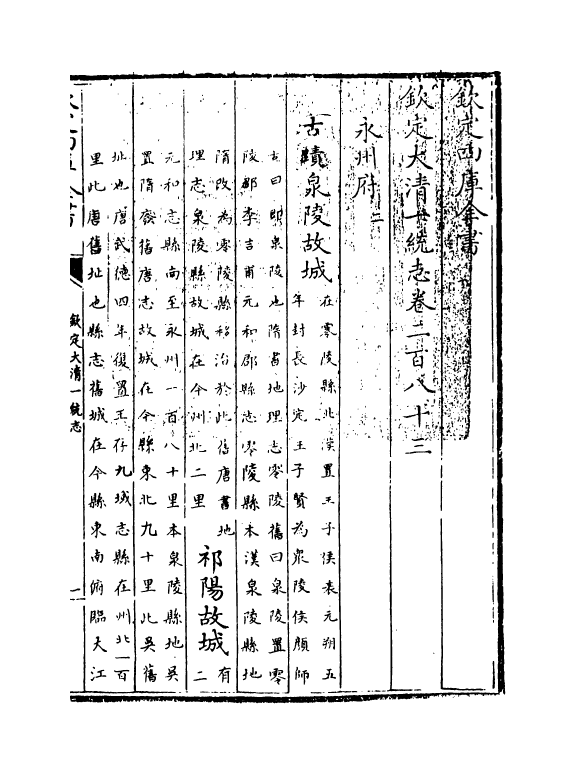 欽定四庫全書
欽定大清一統志卷二百八十三
永州府二
古蹟泉陵故城
在零陵縣北漢置王子侯表元朔五
年封長沙定王子賢為衆陵侯顏師
古曰即泉陵也隋書地理志零陵舊曰泉陵置零
陵郡李吉甫元和郡縣志零陵縣本漢泉陵縣地
隋改為零陵縣移治於此舊唐書地
理志泉陵縣故城在今州北二里
祁陽故城
有
二
元和志縣南至永州一百八十里本泉陵縣地吳
置隋廢舊唐志故城在今縣東北九十里此吳舊
址也唐武德四年復置王存九域志縣在州北一百
里此唐舊址也縣志舊城在今縣東南俯臨大江
欽定大清一統志
一